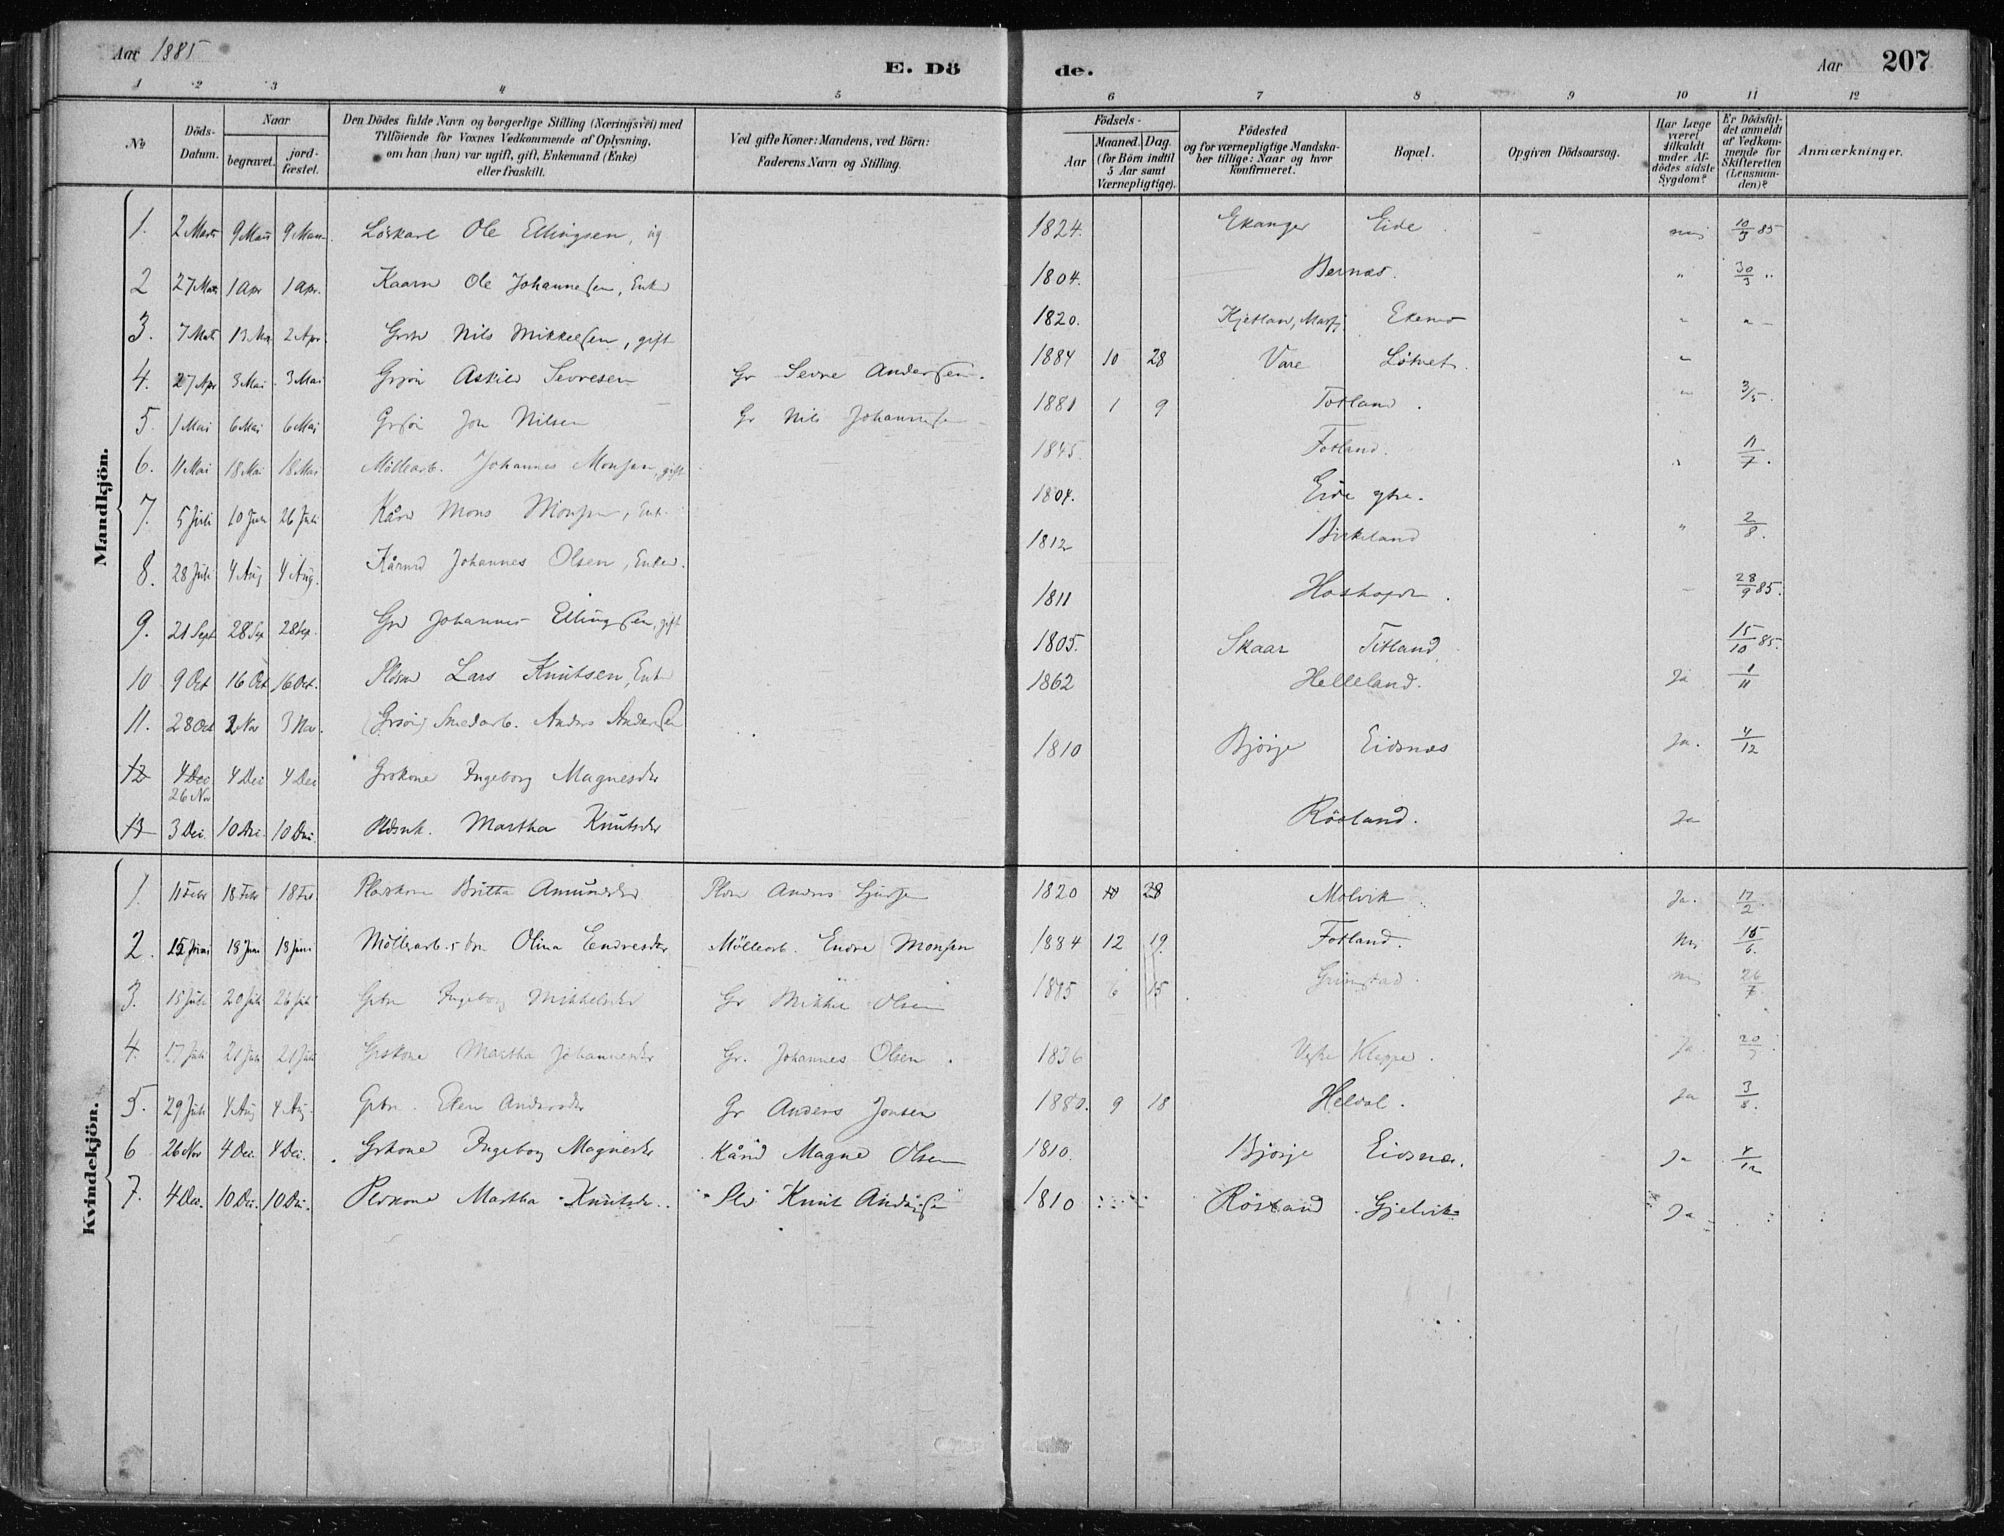 Aar 1885
E. Dö
de.
Aar
207
1 2 3 4 5 6 7 8 9 10 11 12
No
Döds-Datum.
Naar
begravet.
jord-fæstet.
Den Dödes fulde Navn og borgerlige Stilling (Næringsvei) med
Tilföiende for Voxnes Vedkommende af Oplysning,
om han (hun) var ugift, gift, Enkemand (Enke)
eller fraskilt.
Ved gifte Koner: Mandens, ved Börn:
Faderens Navn og Stilling.
Födsels-
Aar
Maaned. Dag.
(for Börn indtil
5 Aar samt
Værnepligtige).
Födested
og for værnepligtige Mandska-
ber tillige: Naar og hvor
konfirmeret.
Bopæl.
Opgiven Dödsaarsag.
Har Læge
været
tilkaldt
under Af-
dödes sidste
Sygdom?
Er Dödsfal-
det anmeldt
af Vedkom-
mende for
Skifteretten
(Lensman-
den)?
Anmærkninger.
Mandkjön.
1. 2 Marts 9 Mars 9 Mars Löskarl Ole Ellingsen, ug 1824. Ekanger Eide nei 10/3 85
2 27 Mar. 1 Apr 1 Apr. Kaarm Ole Johannesen, Enkem 1804. Bernæs. " 30/3 "
3. 7 Mars 13 Ma 2 Apr. Grm Nils Mikkelsen, gift 1820. Ekenes " "
4. 27 Apr 3 Mai 3 Mai Grsön Askild Sevresen Gr Sevre Andersen. 1884 10 28 Vare Lötveit "
5. 1 Mai 6 Mai 6 Mai Grsön Jon Nilsen Gr Nils Johannesen 1881 1 9 Totland. " 3/5.
6. 11 Mai 18 Mai 18 Mai Möllearb. Johannes Monsen, gift 1845. Fotland. " 11/7.
7. 5 Juli 10 Juli 26 Juli Kårm Mons Monsen, Enk. 1804. Eide ytre.
8. 28 Juli 4 Aug 4 Aug. Kårmd Johannes Olsen, Enkem. 1812 Birkeland " 2/8.
9. 21 Sept 28 Sep 28 Sep. Grd Johannes Ellingsen, gift 1811 Hoshovde. 28/9 85.
10 9 Oct 16 Oct 16 Oct. Pldsm Lars Knutsen, Enk 1805. Skaar Titland 15/10 85.
11. 28 Oct 2 Nov 3 Nov. (Grsön) Smedarb. Anders Andersen 1862 Helleland. Ja 1/11
12 4 Dec 26 Nov 4 Dei 4 Dei Grskone Ingeborg Magnesdtr 1810 Bjørge Eidsnæs Ja. 4/12
13 3 Dei. 10 Dei. 10 Dei. Pldsnk. Martha Knutsdtr Röstand. Ja
Kvindekjön.
1. 11 Febr 18 Febr 18 Feb. Pladskone Britha Amundsdtr Pldm Anders 1820 10 28 Molvik Ja. 17/2
2. 15 Juni 18 Juni 18 Juni Möllearb.s dtr Olina Endresdtr Möllearb. Endre Monsen 1884 12 19. Fotland. Nei 15/6.
3. 15 Juli 20 Juli 26 Juli Grdtr Ingeborg Mikkelsdtr Gr Mikkel Olsen 1885 6 15 Grimstad nei 26/7.
4. 17 Juli 21 Juli 21 Juli Grskone Martha Johannesdtr Gr. Johannes Olsen. 1836 Vestre Kleppe. Ja 20/7.
5. 29 Juli 4 Aug 4 Aug. Grdtr. Elen Andersdtr Gr Anders Jonsen 1880. 9 18 Heldal. Ja 3/8.
6 26 Nov 4 Dei. 4 Dei. Grkone Ingeborg Magnesdtr Kård Magne Olsen 1810. Bjørge Eidsnæs. Ja 4/12
7. 4 Dec. 10 Dei. 10 Dei. Pldskone Martha Knutsdtr. Pld Knut Andersen 1810 Röstand Gjelvik Ja